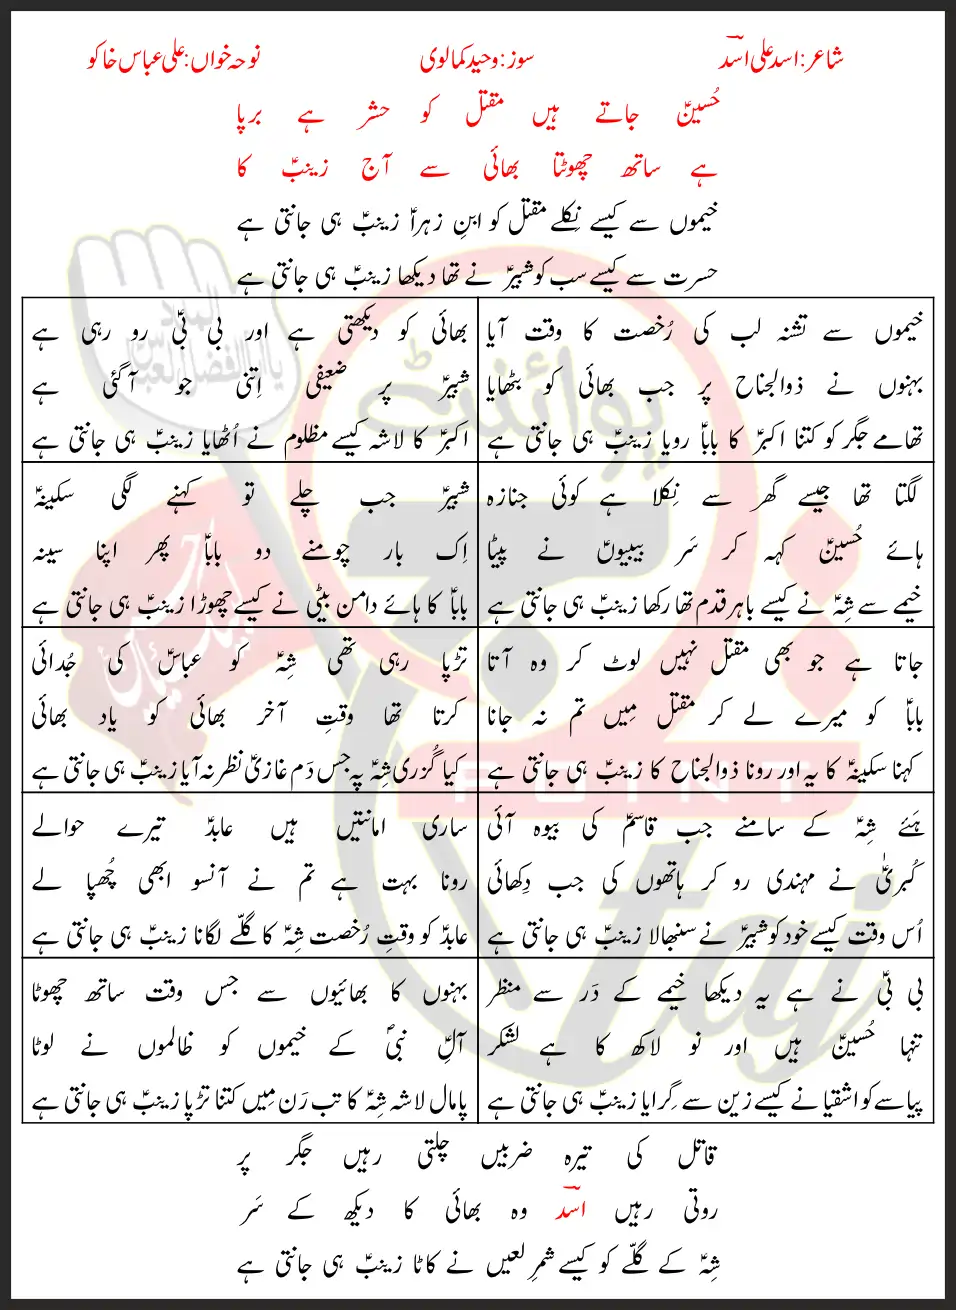 شاعر:اسد علی اسدؔ
سوز:وحید کمالوی
نوحہ خواں:علی عباس خاکو
حُسینؑ جاتے ہیں مقتل کو حشر ہے برپا
ہے ساتھ چھوٹتا بھائی سے آج زینبؑ کا
خیموں سے کیسے نِکلے مقتل کو ابنِ زہراؑ زینبؑ ہی جانتی ہے
حسرت سے کیسے سب کو شبیرؑ نے تھا دیکھا زینبؑ ہی جانتی ہے
خیموں سے تشنہ لب کی رُخصت کا وقت آیا
بہنوں نے ذوالجناح پر جب بھائی کو بٹھایا
تھامے جگر کو کتنا اکبرؑ کا باباؑ رویا زینبؑ ہی جانتی ہے
بھائی کو دیکھتی ہے اور بی بیؑ رو رہی ہے
شبیرؑ پر ضعیفی اِتنی جو آ گئی ہے
اکبرؑ کا لاشہ کیسے مظلوم نے اُٹھایا زینبؑ ہی جانتی ہے
لگتا تھا جیسے گھر سے نِکلا ہے کوئی جنازہ
ہائے حُسینؑ کہہ کر سَر بیبیوںؑ نے پیٹا
خیمے سے شِہؑ نے کیسے باہر قدم تھا رکھا زینبؑ ہی جانتی ہے
شبیرؑ جب چلے تو کہنے لگی سکینہؑ
اِک بار چومنے دو باباؑ پھر اپنا سینہ
باباؑ کا ہائے دامن بیٹی نے کیسے چھوڑا زینبؑ ہی جانتی ہے
جاتا ہے جو بھی مقتل نہیں لوٹ کر وہ آتا
باباؑ کو میرے لے کر مقتل مِیں تم نہ جانا
کہنا سکینہؑ کا یہ اور رونا ذوالجناح کا زینبؑ ہی جانتی ہے
تڑپا رہی تھی شِہؑ کو عباسؑ کی جُدائی
کرتا تھا وقتِ آخر بھائی کو یاد بھائی
کیا گُزری شِہؑ پہ جس دَم غازیؑ نظر نہ آیا زینبؑ ہی جانتی ہے
ہَئے شِہؑ کے سامنے جب قاسمؑ کی بیوہ آئی
کُبریٰؑ نے مہندی رو کر ہاتھوں کی جب دِکھائی
اُس وقت کیسے خود کو شبیرؑ نے سنبھالا زینبؑ ہی جانتی ہے
ساری امانتیں ہیں عابدؑ تیرے حوالے
رونا بہت ہے تم نے آنسو ابھی چُھپا لے
عابدؑ کو وقتِ رُخصت شِہؑ کا گلے لگانا زینبؑ ہی جانتی ہے
بی بیؑ نے ہے یہ دیکھا خیمے کے دَر سے منظر
تنہا حُسینؑ ہیں اور نو لاکھ کا ہے لشکر
پیاسے کو اشقیا نے کیسے زین سے گِرایا زینبؑ ہی جانتی ہے
بہنوں کا بھائیوں سے جس وقت ساتھ چھوٹا
آلِ نبیؐ کے خیموں کو ظالموں نے لوٹا
پامال لاشہ شِہؑ کا تب رَن مِیں کتنا تڑپا زینبؑ ہی جانتی ہے
قاتل کی تیرہ ضربیں چلتی رہیں جگر پر
روتی رہیں اسدؔ وہ بھائی کا دیکھ کے سَر
شِہؑ کے گلے کو کیسے شمرِ لعیں نے کاٹا زینبؑ ہی جانتی ہے
پوائنٹ
POINT
taj